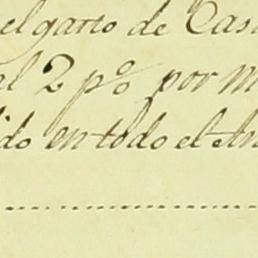 el garto de Casa
al 2 p.º por m
do en todo el An